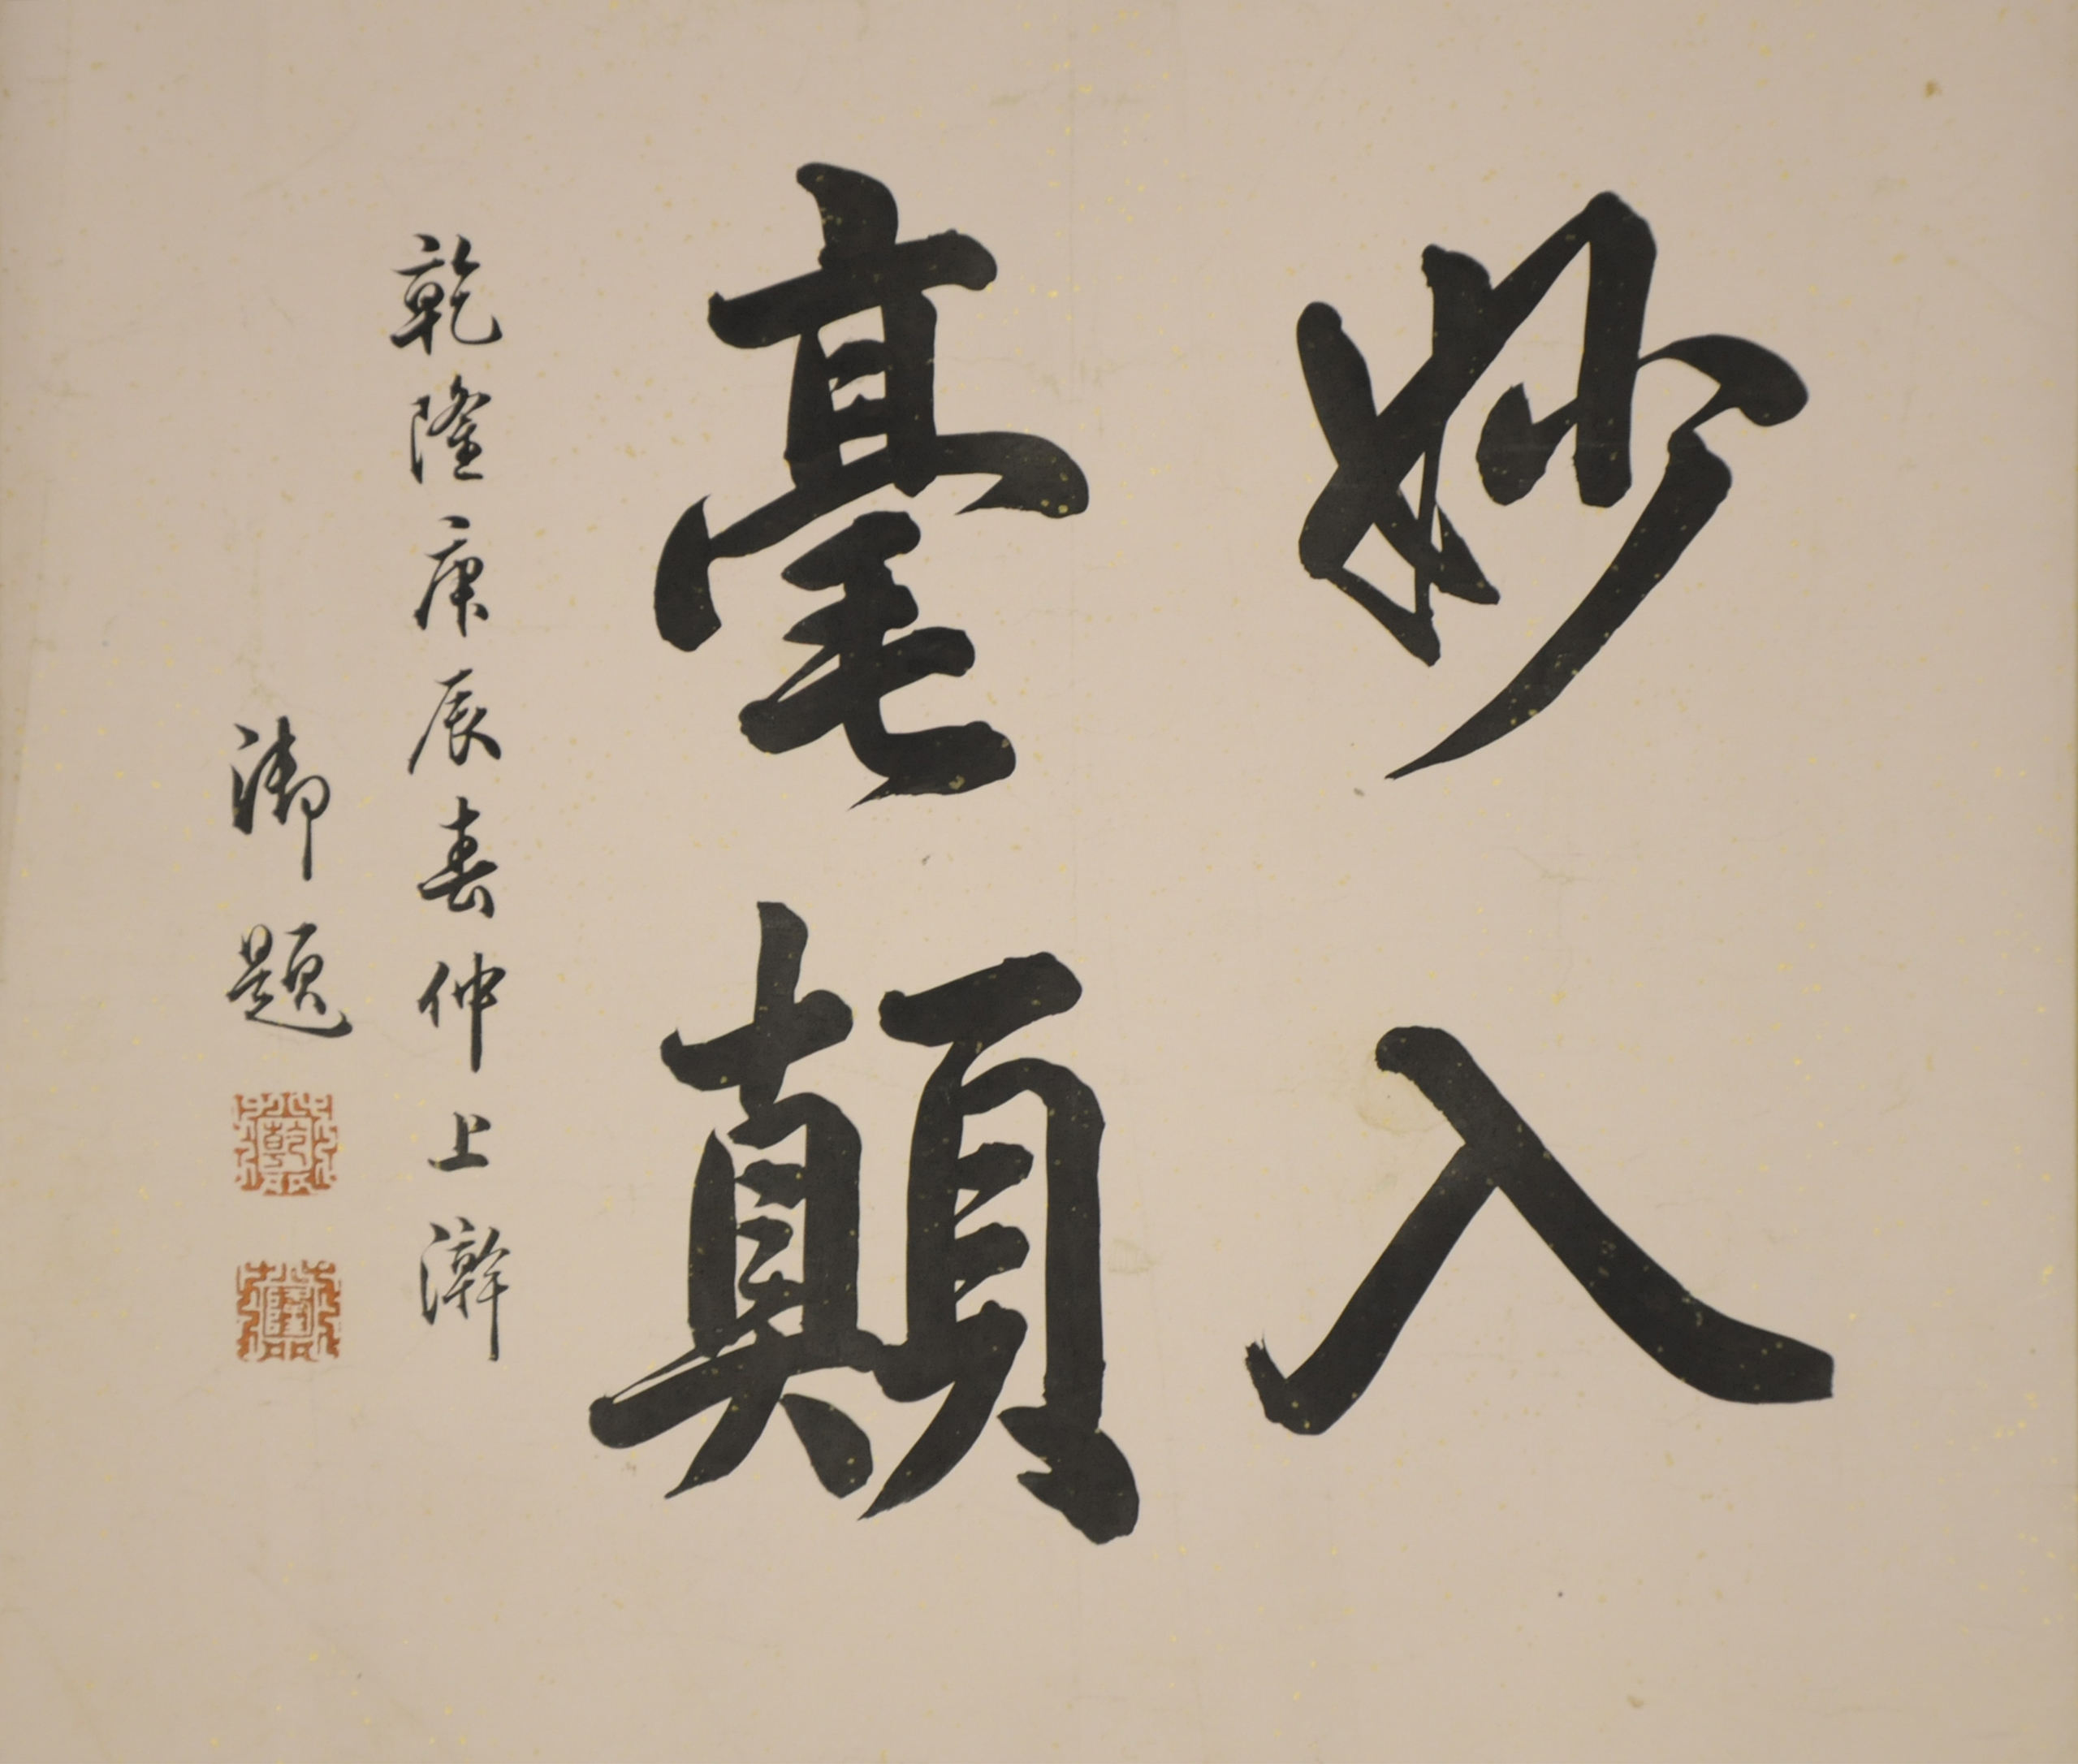 妙入
毫顛
乾隆庚辰春仲上澣
御題